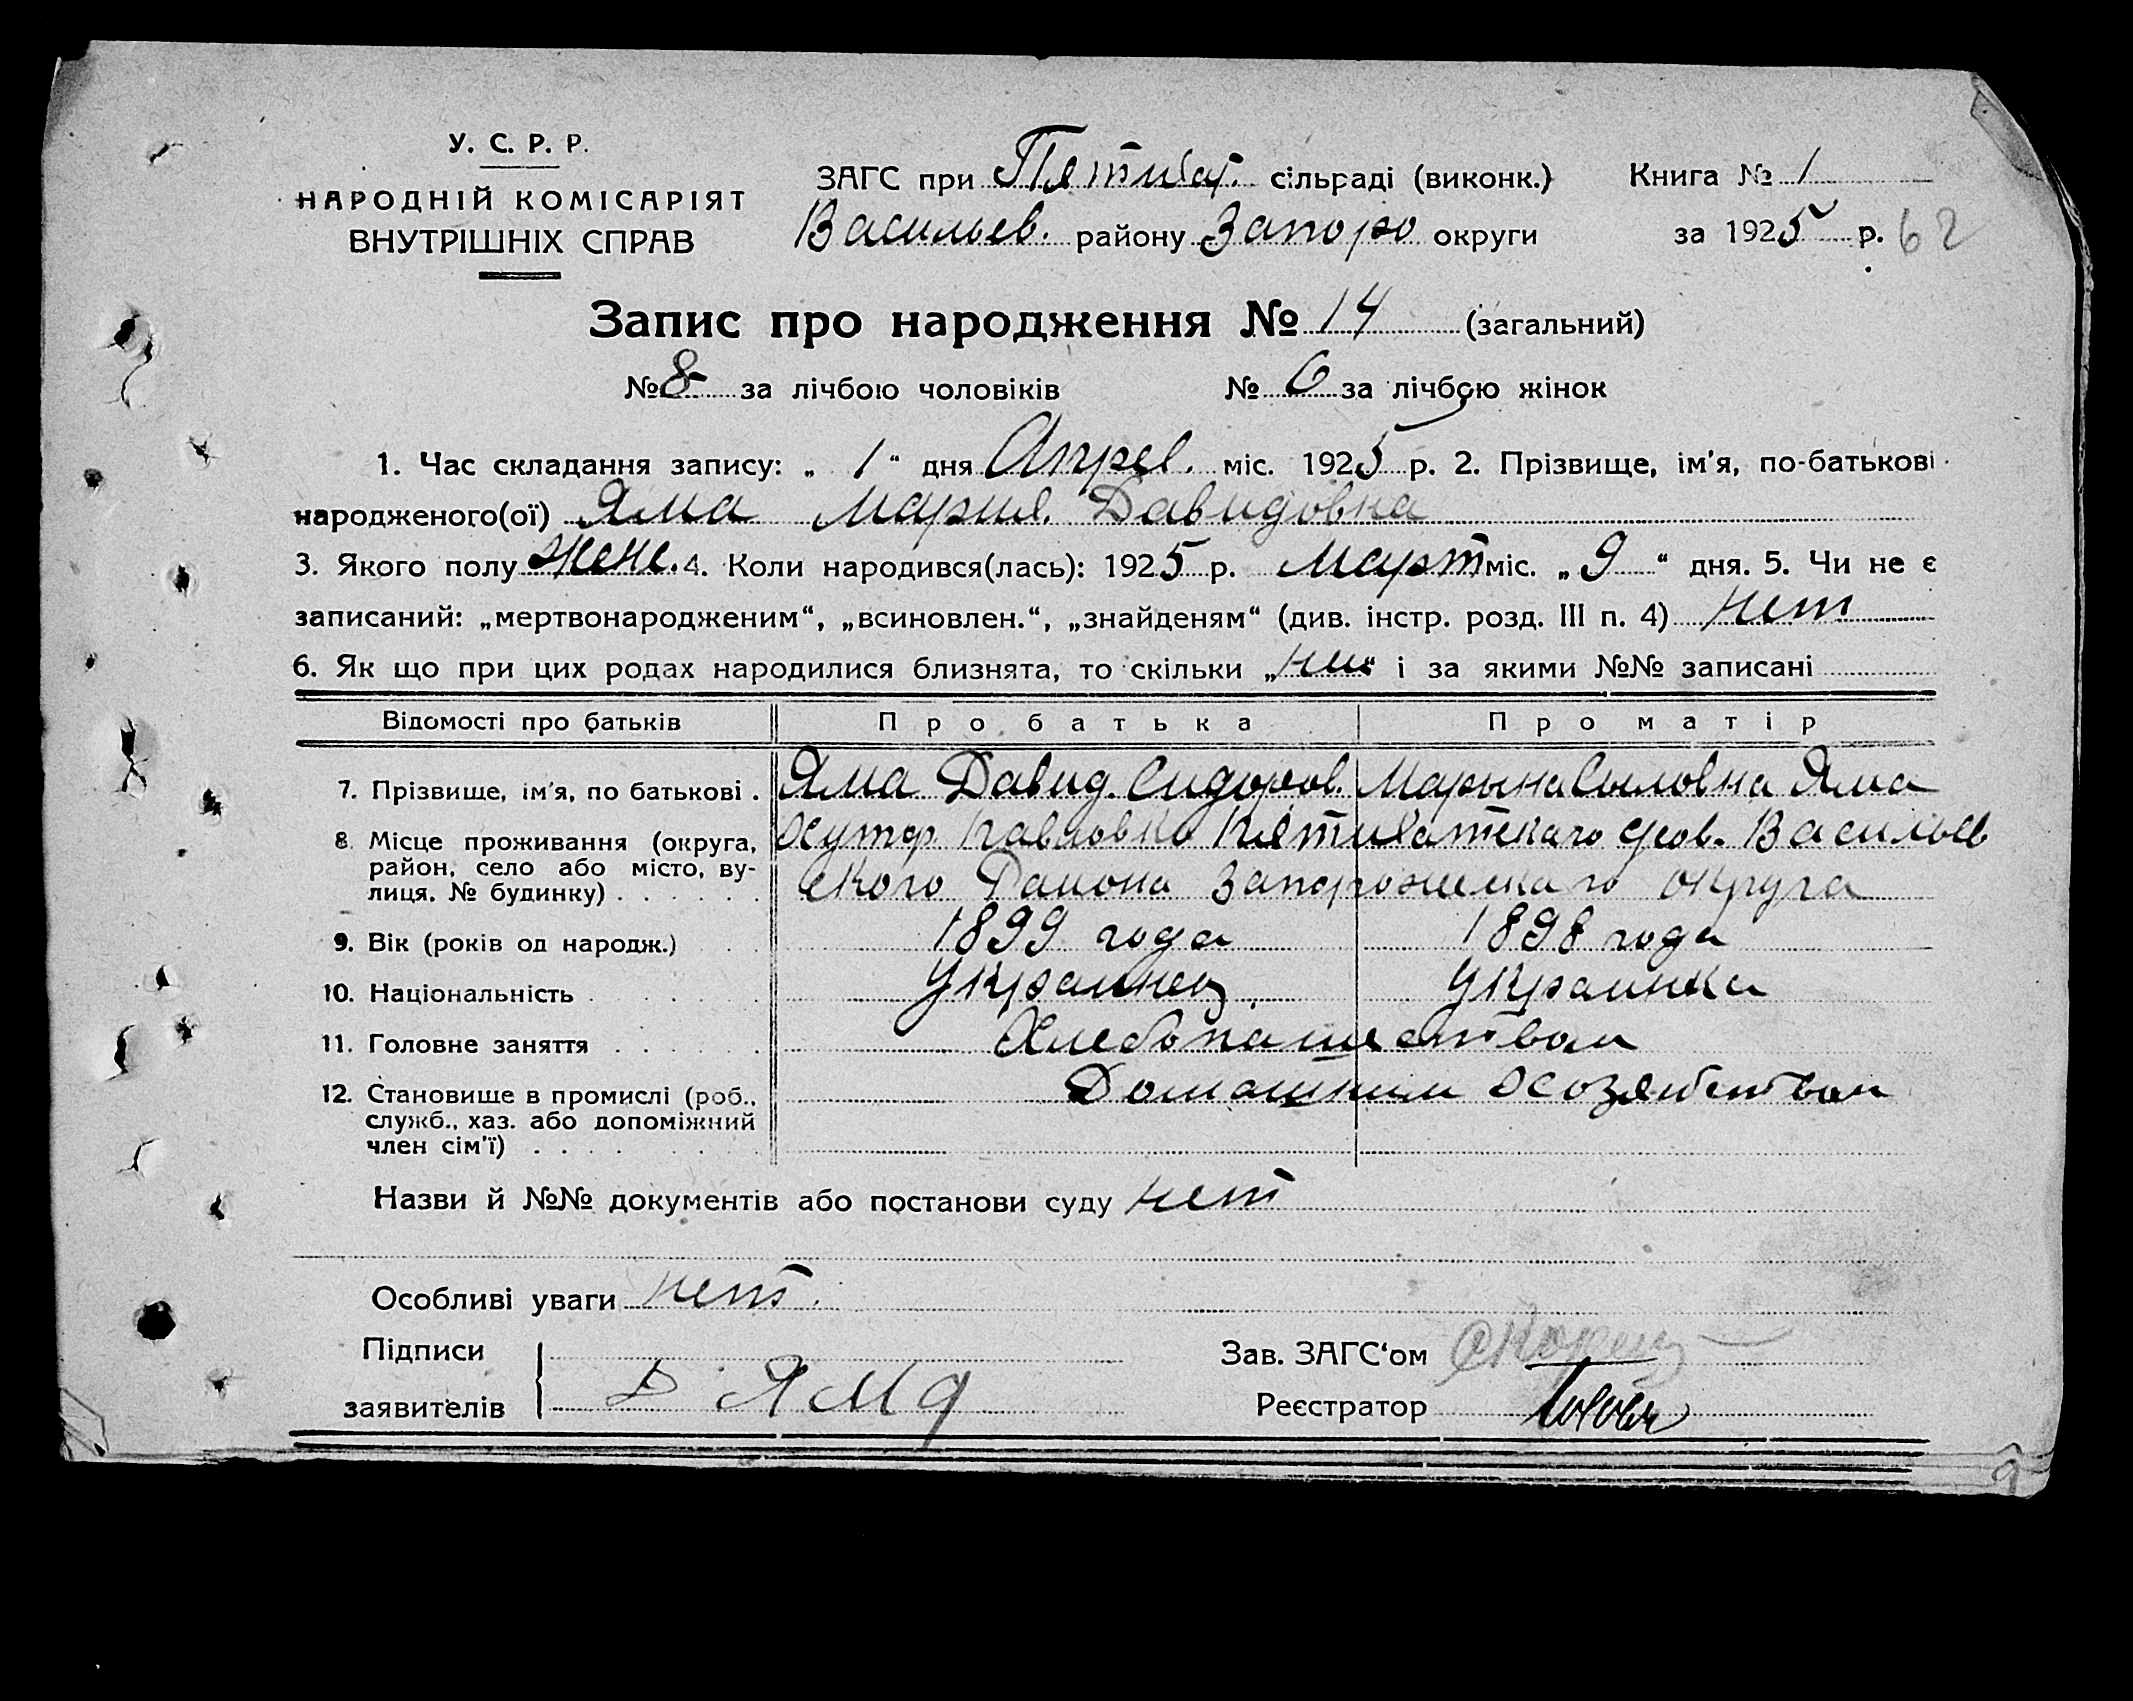 У. С. Р. Р.
НАРОДНІЙ КОМІСАРІЯТ
ВНУТРІШНІХ СПРАВ
ЗАГС при Пятихат. сільраді (виконк.)
Васильев. району Запоро округи
Книга № 1
за 1925 р. 62
Запис про народження № 14 (загальний)
№ 8 за лічбою чоловіків № 6 за лічбою жінок
1. Час складання запису: „ 1 “ дня Апрел. міс. 1925 р. 2. Прізвище, ім'я, по-батькові
народженого(ої) Яма Мария. Давидовна
3. Якого полу жен. 4. Коли народився(лась): 1925 р. Март міс. „ 9 “ дня. 5. Чи не є
записаний: „мертвонародженим“, „всиновлен.“, „знайденям“ (див. інстр. розд. III п. 4) нет
6. Як що при цих родах народилися близнята, то скільки „ “ і за якими №№ записані
Відомості про батьків Про батька Про матір
7. Прізвище, ім'я, по батькові . Яма Давид. Сидоров. Марына Сыловна Яма
8. Місце проживання (округа,
район, село або місто, ву-
лиця, № будинку) . . . . . .
Хутор Павловка Пятихатскаго Васильев
ского Района Запорожскаго округа
9. Вік (років од народж.) 1899 года 1898 года
10. Національність Украинец. Украинка
11. Головне заняття Хлебопашеством
12. Становище в промислі (роб.,
служб., хаз. або допоміжний
член сім'ї) . . . .
Домашним хозяйством
Назви й №№ документів або постанови суду нет
Особливі уваги нет.
Підписи
заявителів
Д Яма
Зав. ЗАГС‘ом
Реєстратор